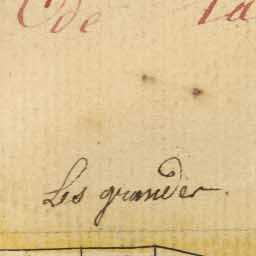 de la
Les grandes